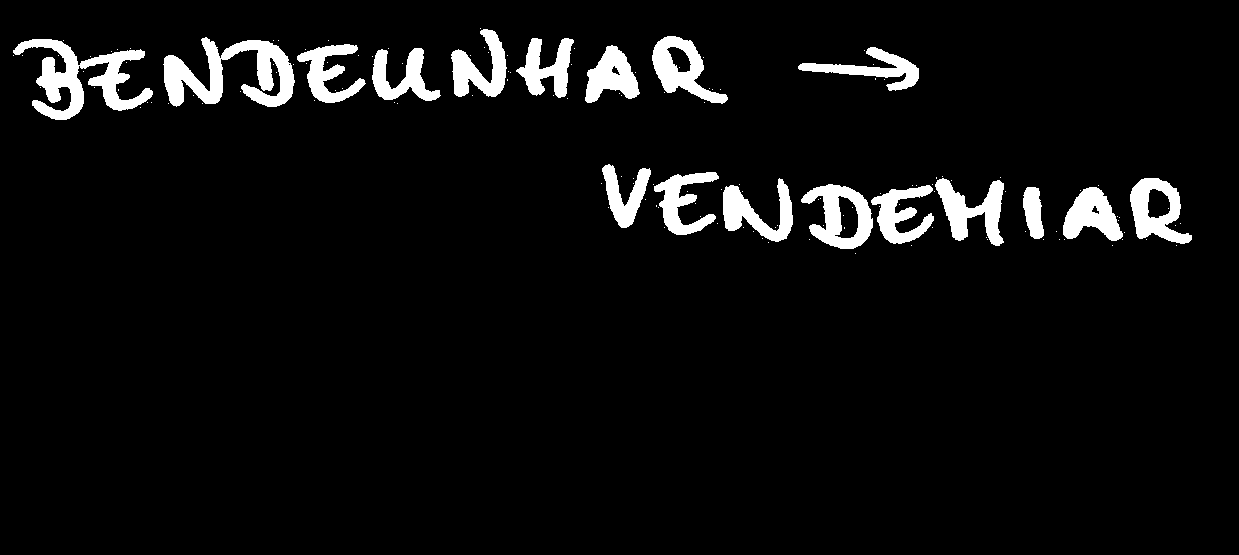 BENDEUNHAR →
VENDEMIAR